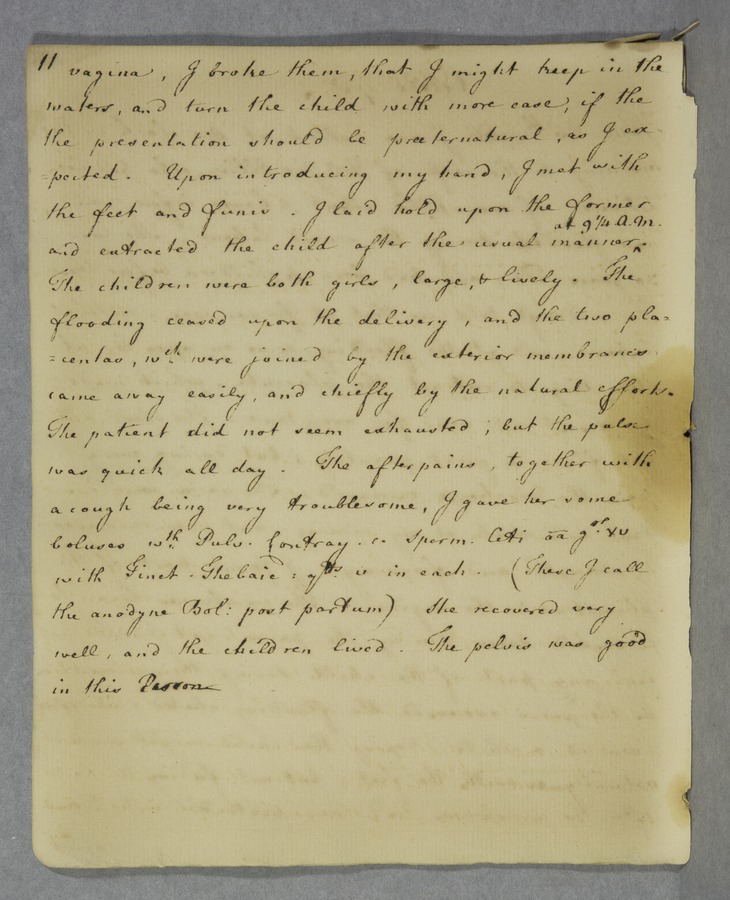 11 vagina, I broke them, that I might keep in the
waters, and turn the child with more ease, if the
the presentation should be præternatural, as I ex
=pected. Upon introducing my hand, I met with
the feet and funis. I laid hold upon the former
at 9¼ A.M.
and extracted the child after the usual manner^.
The children were both girls, large, & lively. The
flooding ceased upon the delivery, and the two pla=
=centas, wch. were joined by the exterior membranes
came away easily, and chiefly by the natural efforts.
The patient did not seem exhausted; but the pulse
was quick all day. The afterpains, together with
a cough being very troublesome, I gave her some
boluses wth. Pulv. Contray. c. Sperm. Ceti āā grs. xv
with Tinct. Thebaic: gtts v in each. (These I call
the anodyne Bol: post partum) She recovered very
well, and the children lived. The pelvis was good
in this Person